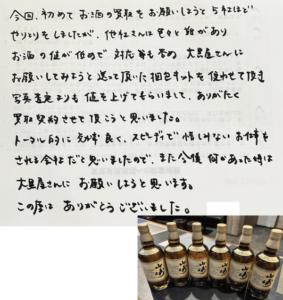 今回、初めてお酒の買取をお願いしようと5社ほど
やりとりをしましたが、他社さんは色々と難があり
お酒の値が低めで対応等も含め、大黒屋さんに
お願いしてみようと送って頂いた梱包キットを使わせて頂き
写真査定よりも値を上げてもらいまして、ありがたく
買取契約させて頂こうと思いました。
トータル的に効率良く、スピーディで惜しみないお仕事を
される会社だと思いましたので、また今後何かあった時は
大黒屋さんにお願いしようと思います。
この度はありがとうございました。
山崎
山崎
山崎
山崎
山崎